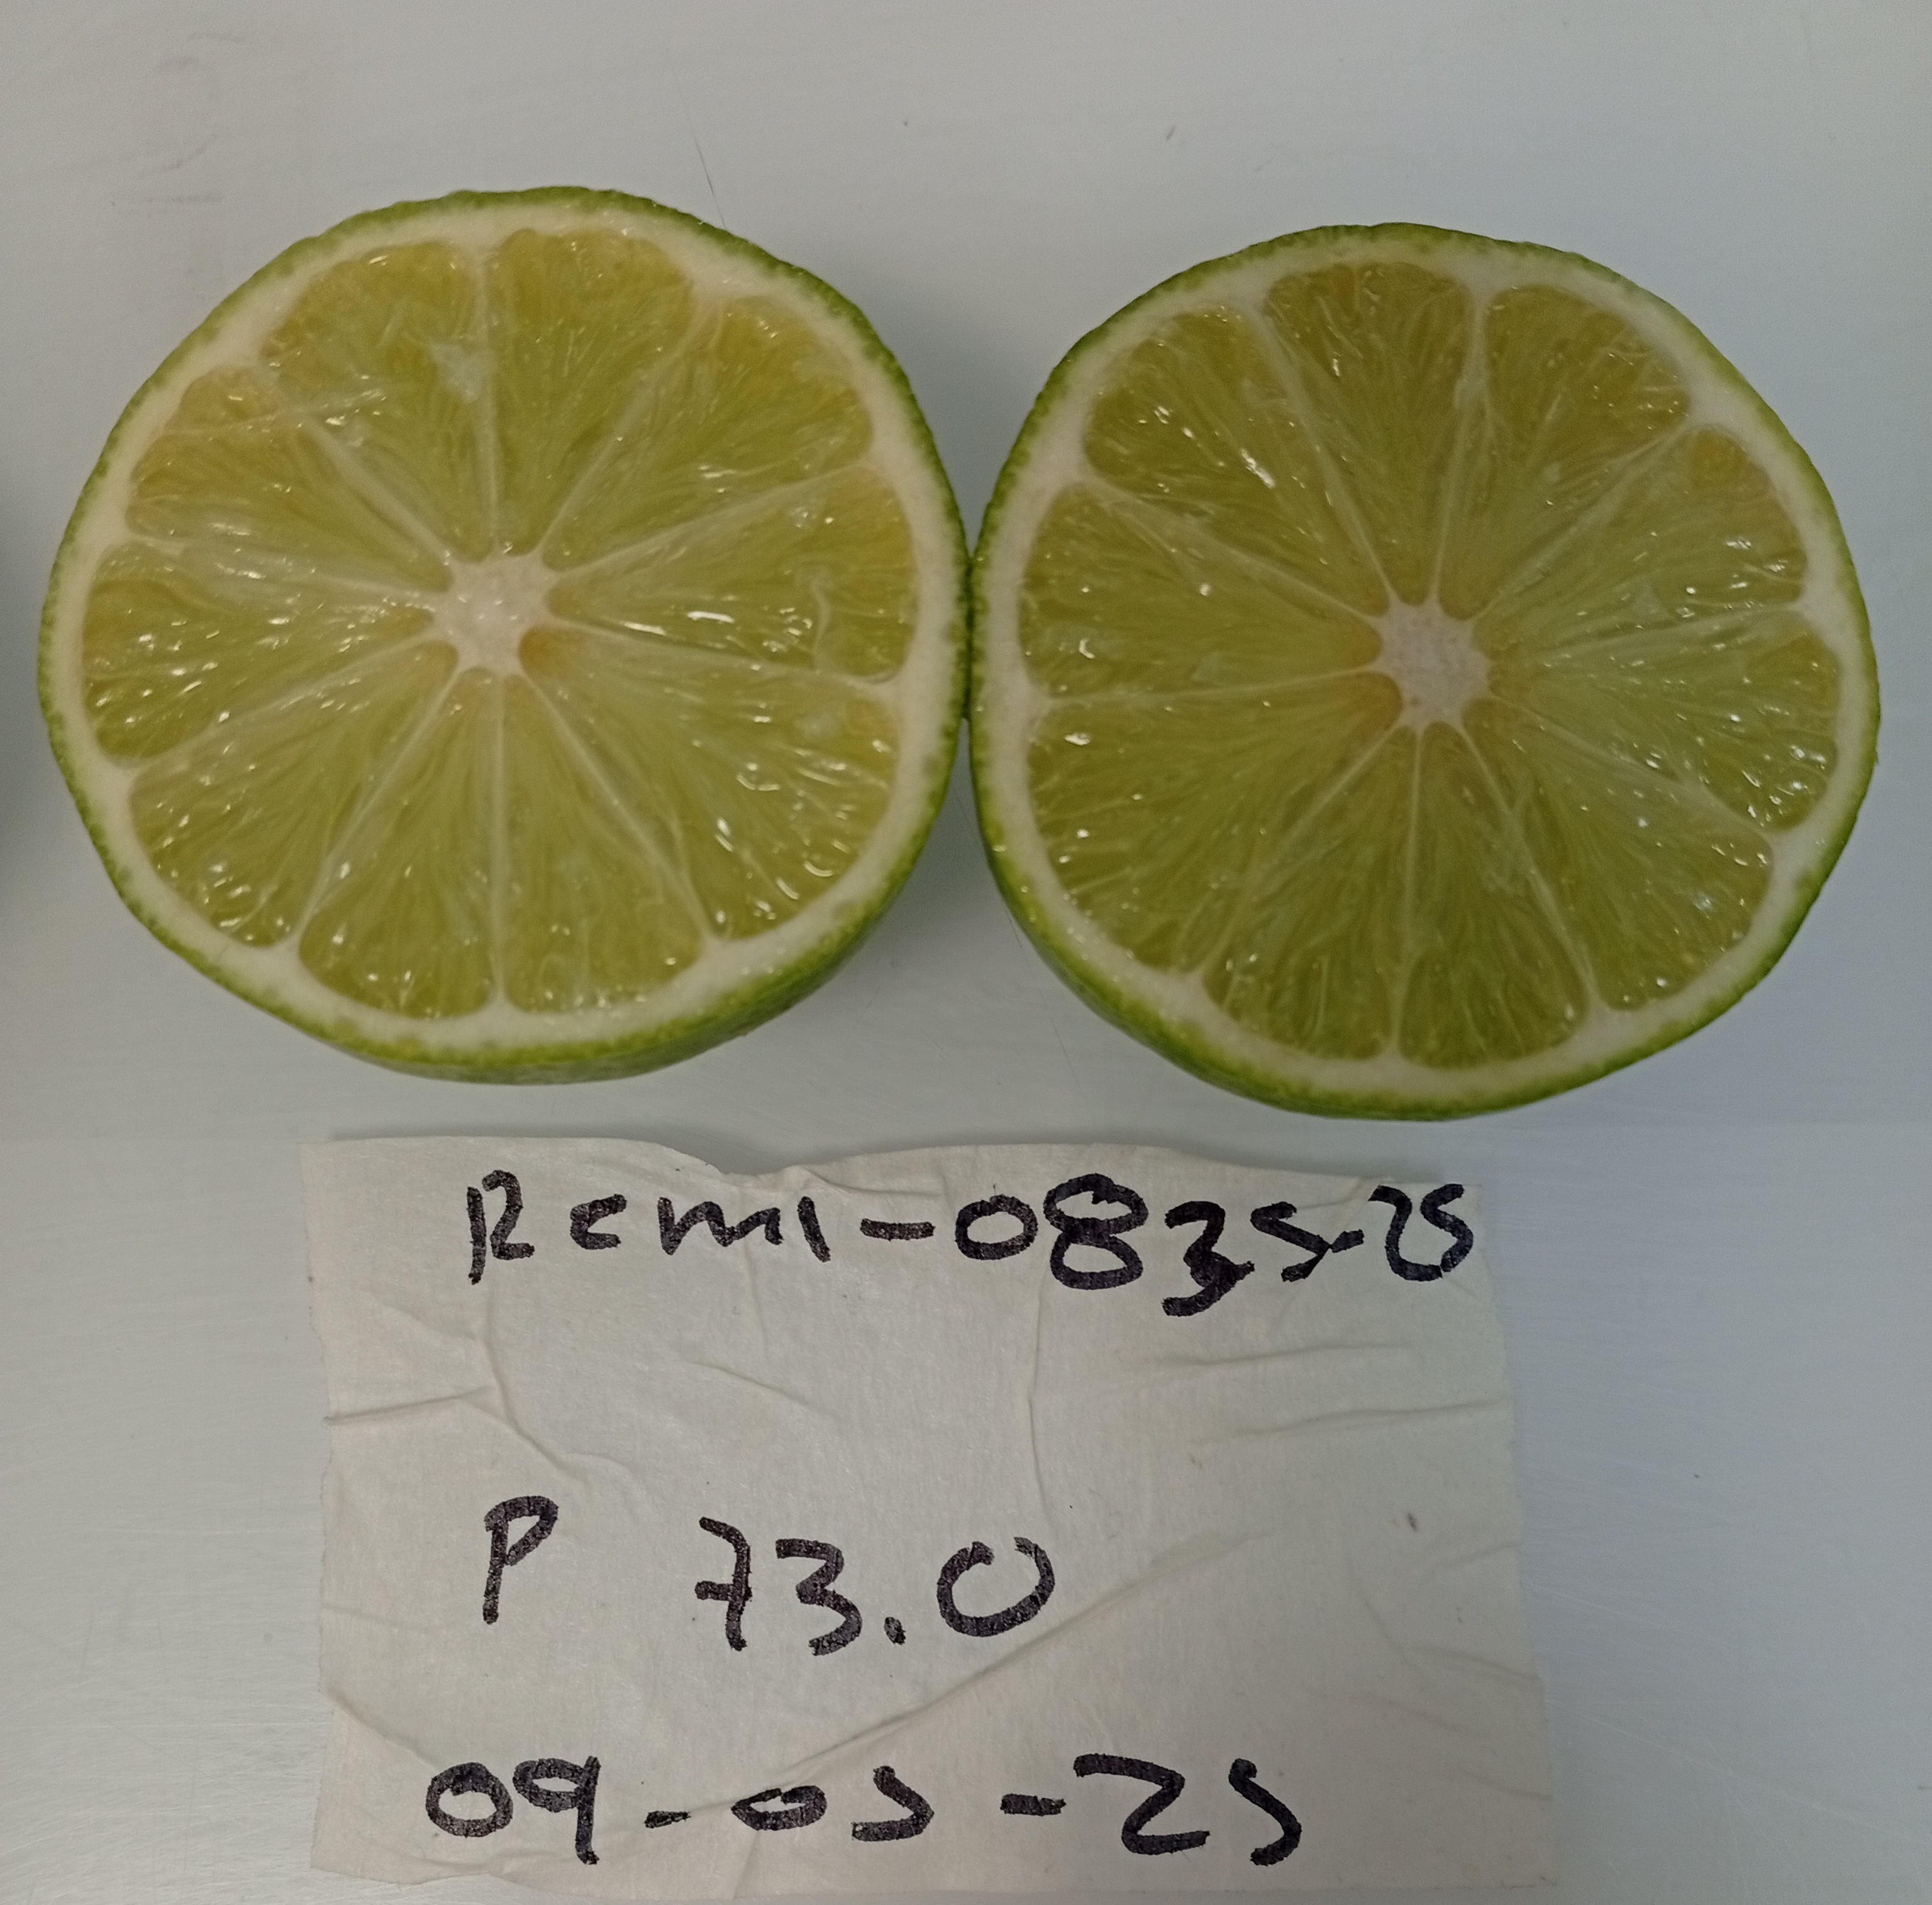 Rcml-0835-25
P 73.0
09-05-25